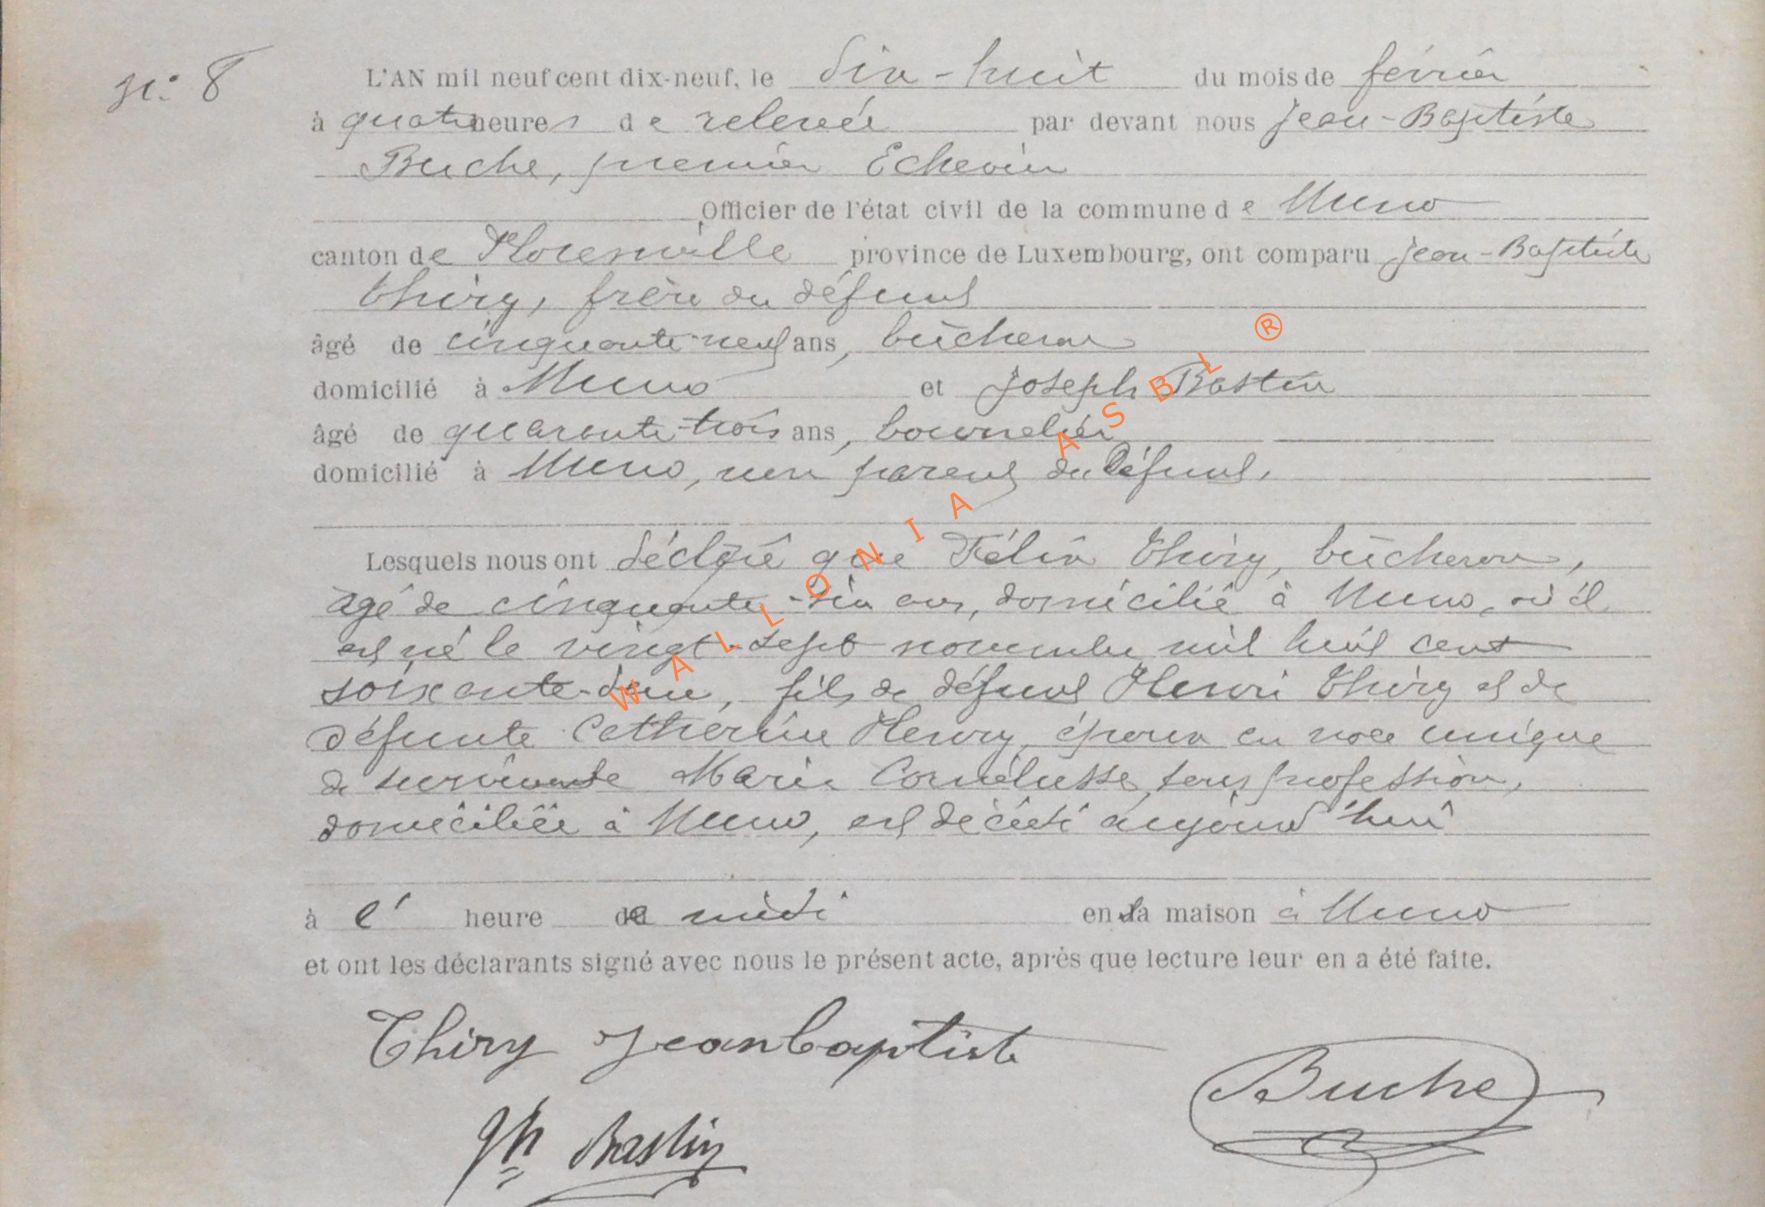 n° 8
L'AN mil neuf cent dix-neuf, le dix-huit du mois de février
à quatre heures de relevée par devant nous Jean-Baptiste
Buche, premier Echevin
Officier de l'état civil de la commune de Muno
canton de Florenville province de Luxembourg, ont comparu Jean-Baptiste
Thiry, frère du défunt
âgé de cinquante-neuf ans, bûcheron
domicilié à Muno et Joseph Bastin
âgé de quarante-trois ans, bourrelier
domicilié à Muno, non parent du défunt.
Lesquels nous ont déclaré que Félix Thiry, bûcheron,
âgé de cinquante-six ans, domicilié à Muno, où il
est né le vingt-sept novembre mil huit cent
soixante-deux, fils de défunt Henri Thiry et de
défunte Catherine Henry, époux en noce unique
de survivante Marie Cornélusse, sans profession,
domiciliée à Muno, est décédé aujourd'hui
à l' heure de midi en sa maison à Muno
et ont les déclarants signé avec nous le présent acte, après que lecture leur en a été faite.
Thiry Jean baptiste
Buche
Jph Bastin
WALLONIA ASBL ®